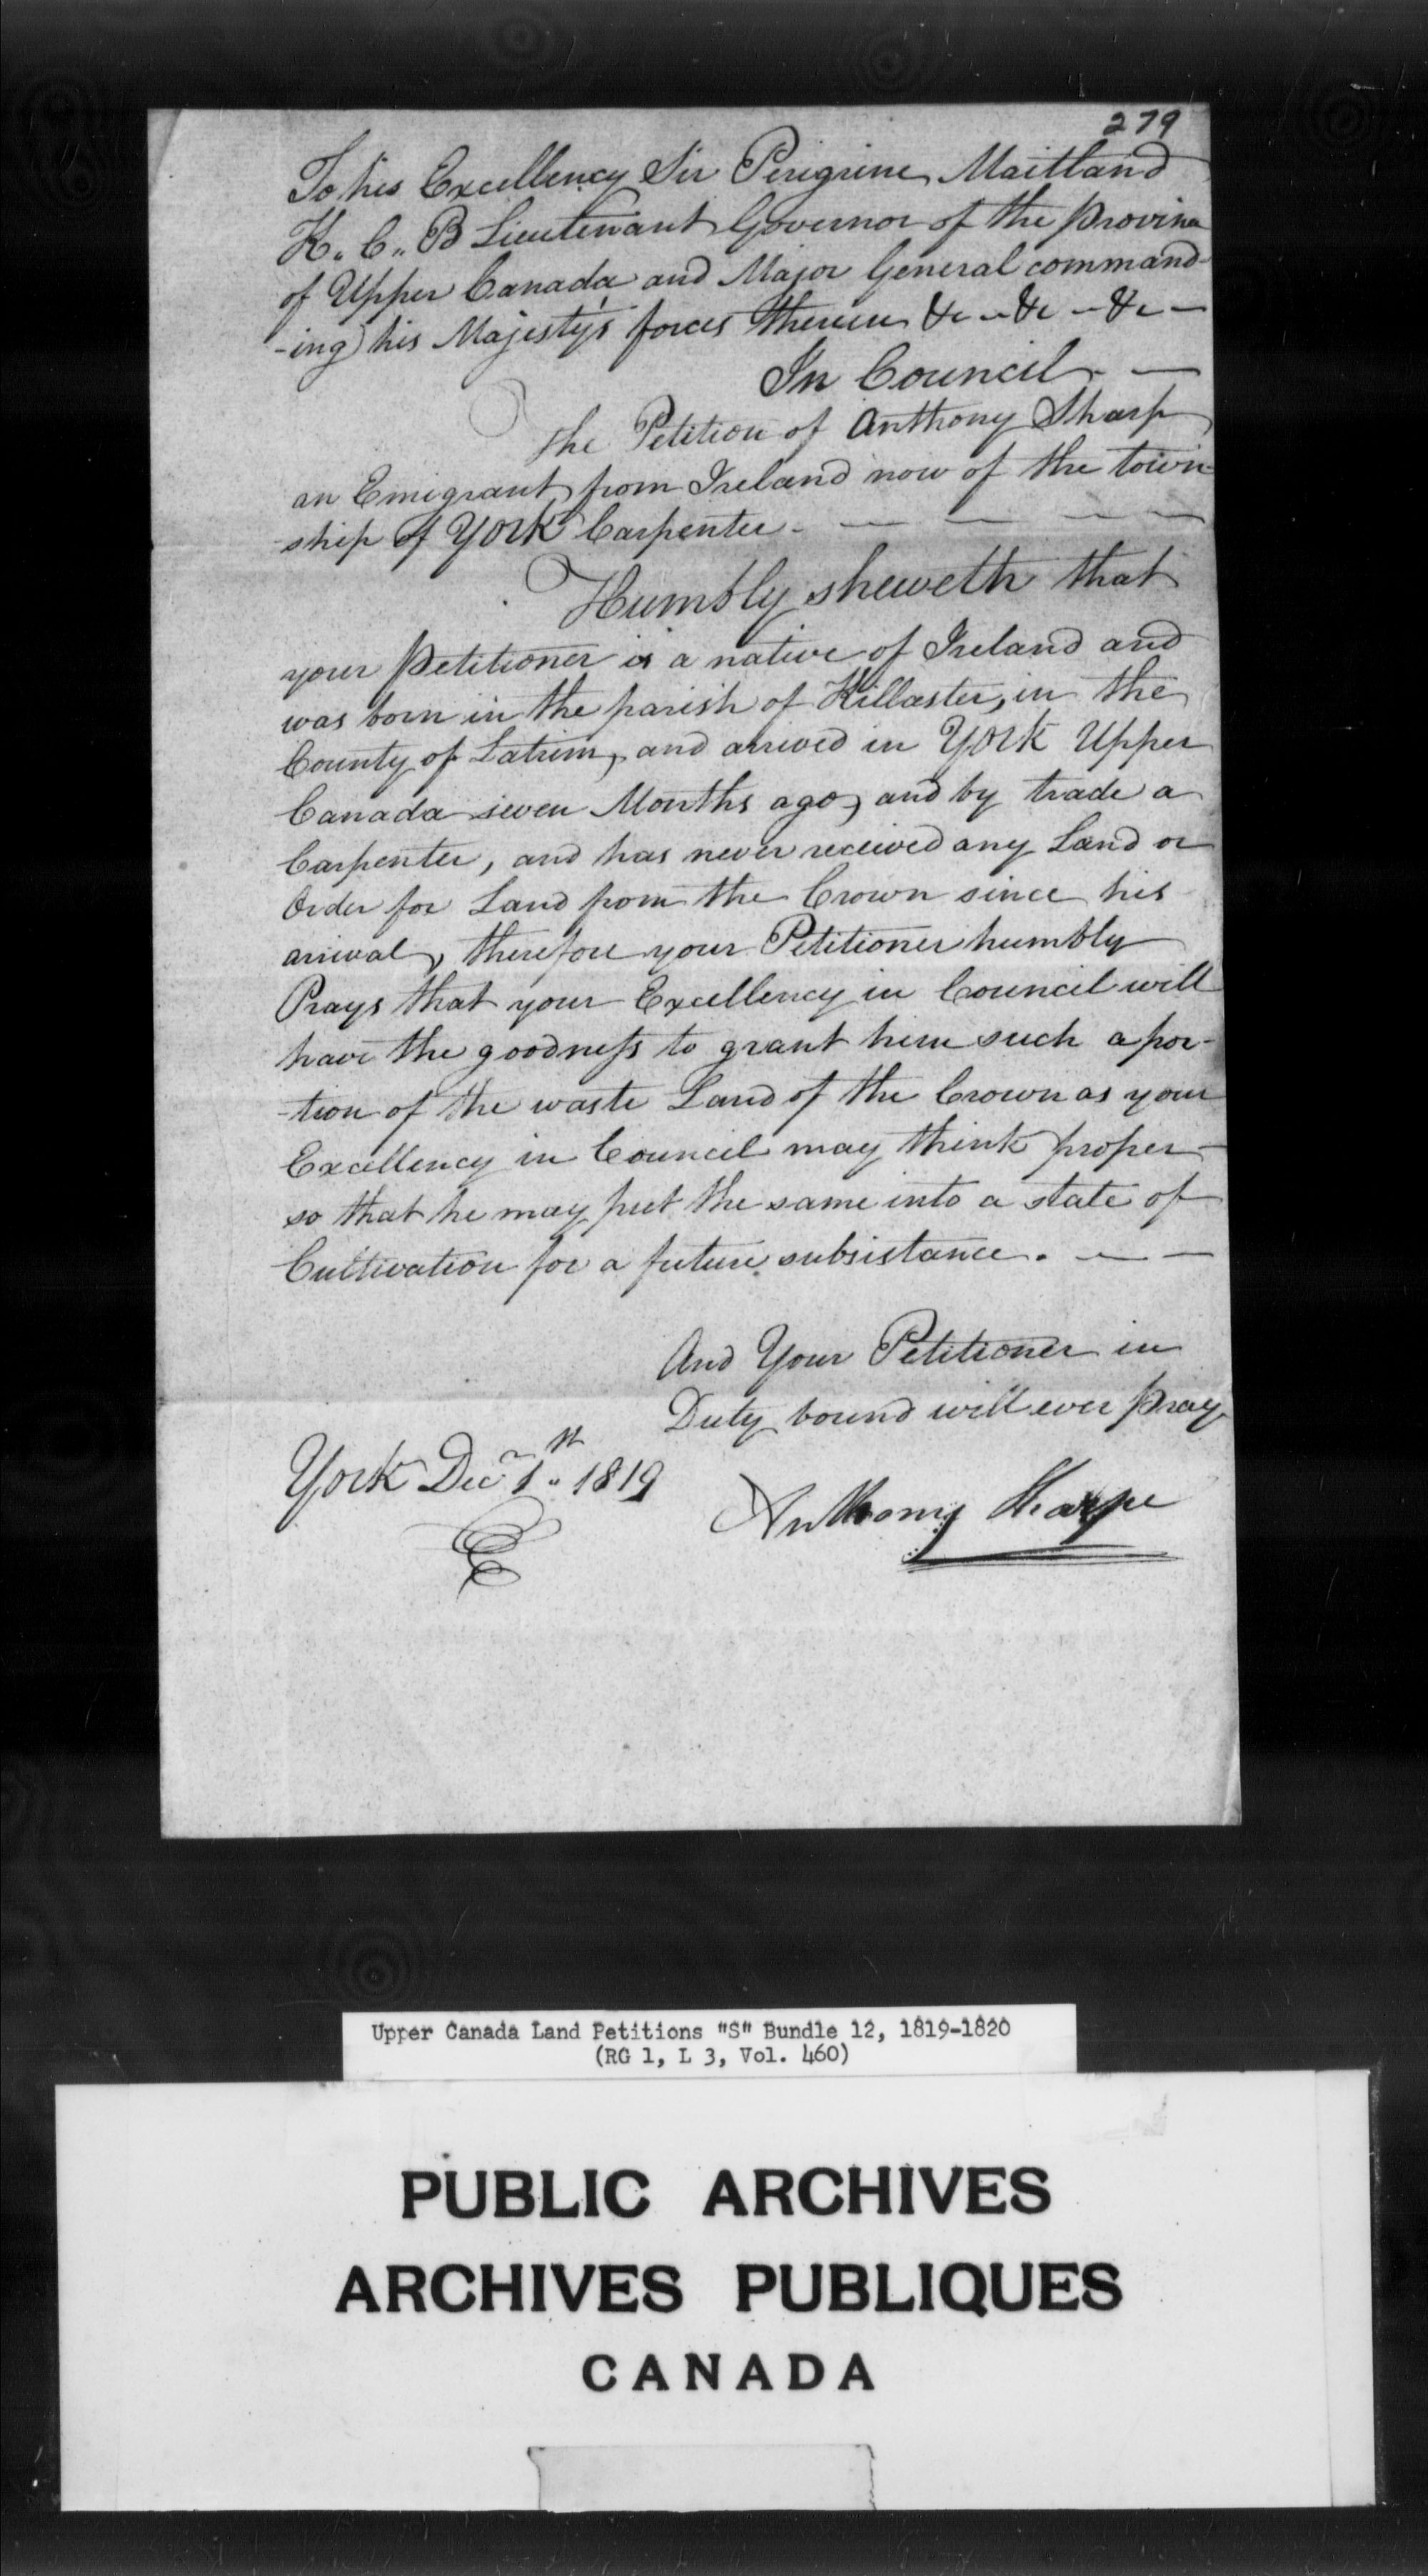 279
To his Excellency Sir Peregrine Maitland
K. C. B Lieutenant Governor of the Province
of Upper Canada and Major General command-
-ing his Majesty's forces therein &c - &c - &c -
In Council. —
The Petition of Anthony Sharp
an Emigrant from Ireland now of the town-
ship of York Carpenter. — — — —
Humbly sheweth that
your Petitioner is a native of Ireland and
was born in the parish of Killaster, in the
County of Latrim, and arrived in York Upper
Canada seven Months ago, and by trade a
Carpenter, and has never received any Land or
Order for Land from the Crown since his
arrival, therefore your Petitioner humbly
Prays that your Excellency in Council will
have the goodness to grant him such a por-
-tion of the waste Land of the Crown as your
Excellency in Council may think proper
so that he may put the same into a state of
Cultivation for a future subsistance. — —
And Your Petitioner in
Duty bound will ever Pray
York Decr 1st 1819
Anthony Sharpe
Upper Canada Land Petitions "S" Bundle 12, 1819-1820
(RG 1, L 3, Vol. 460)
PUBLIC ARCHIVES
ARCHIVES PUBLIQUES
CANADA